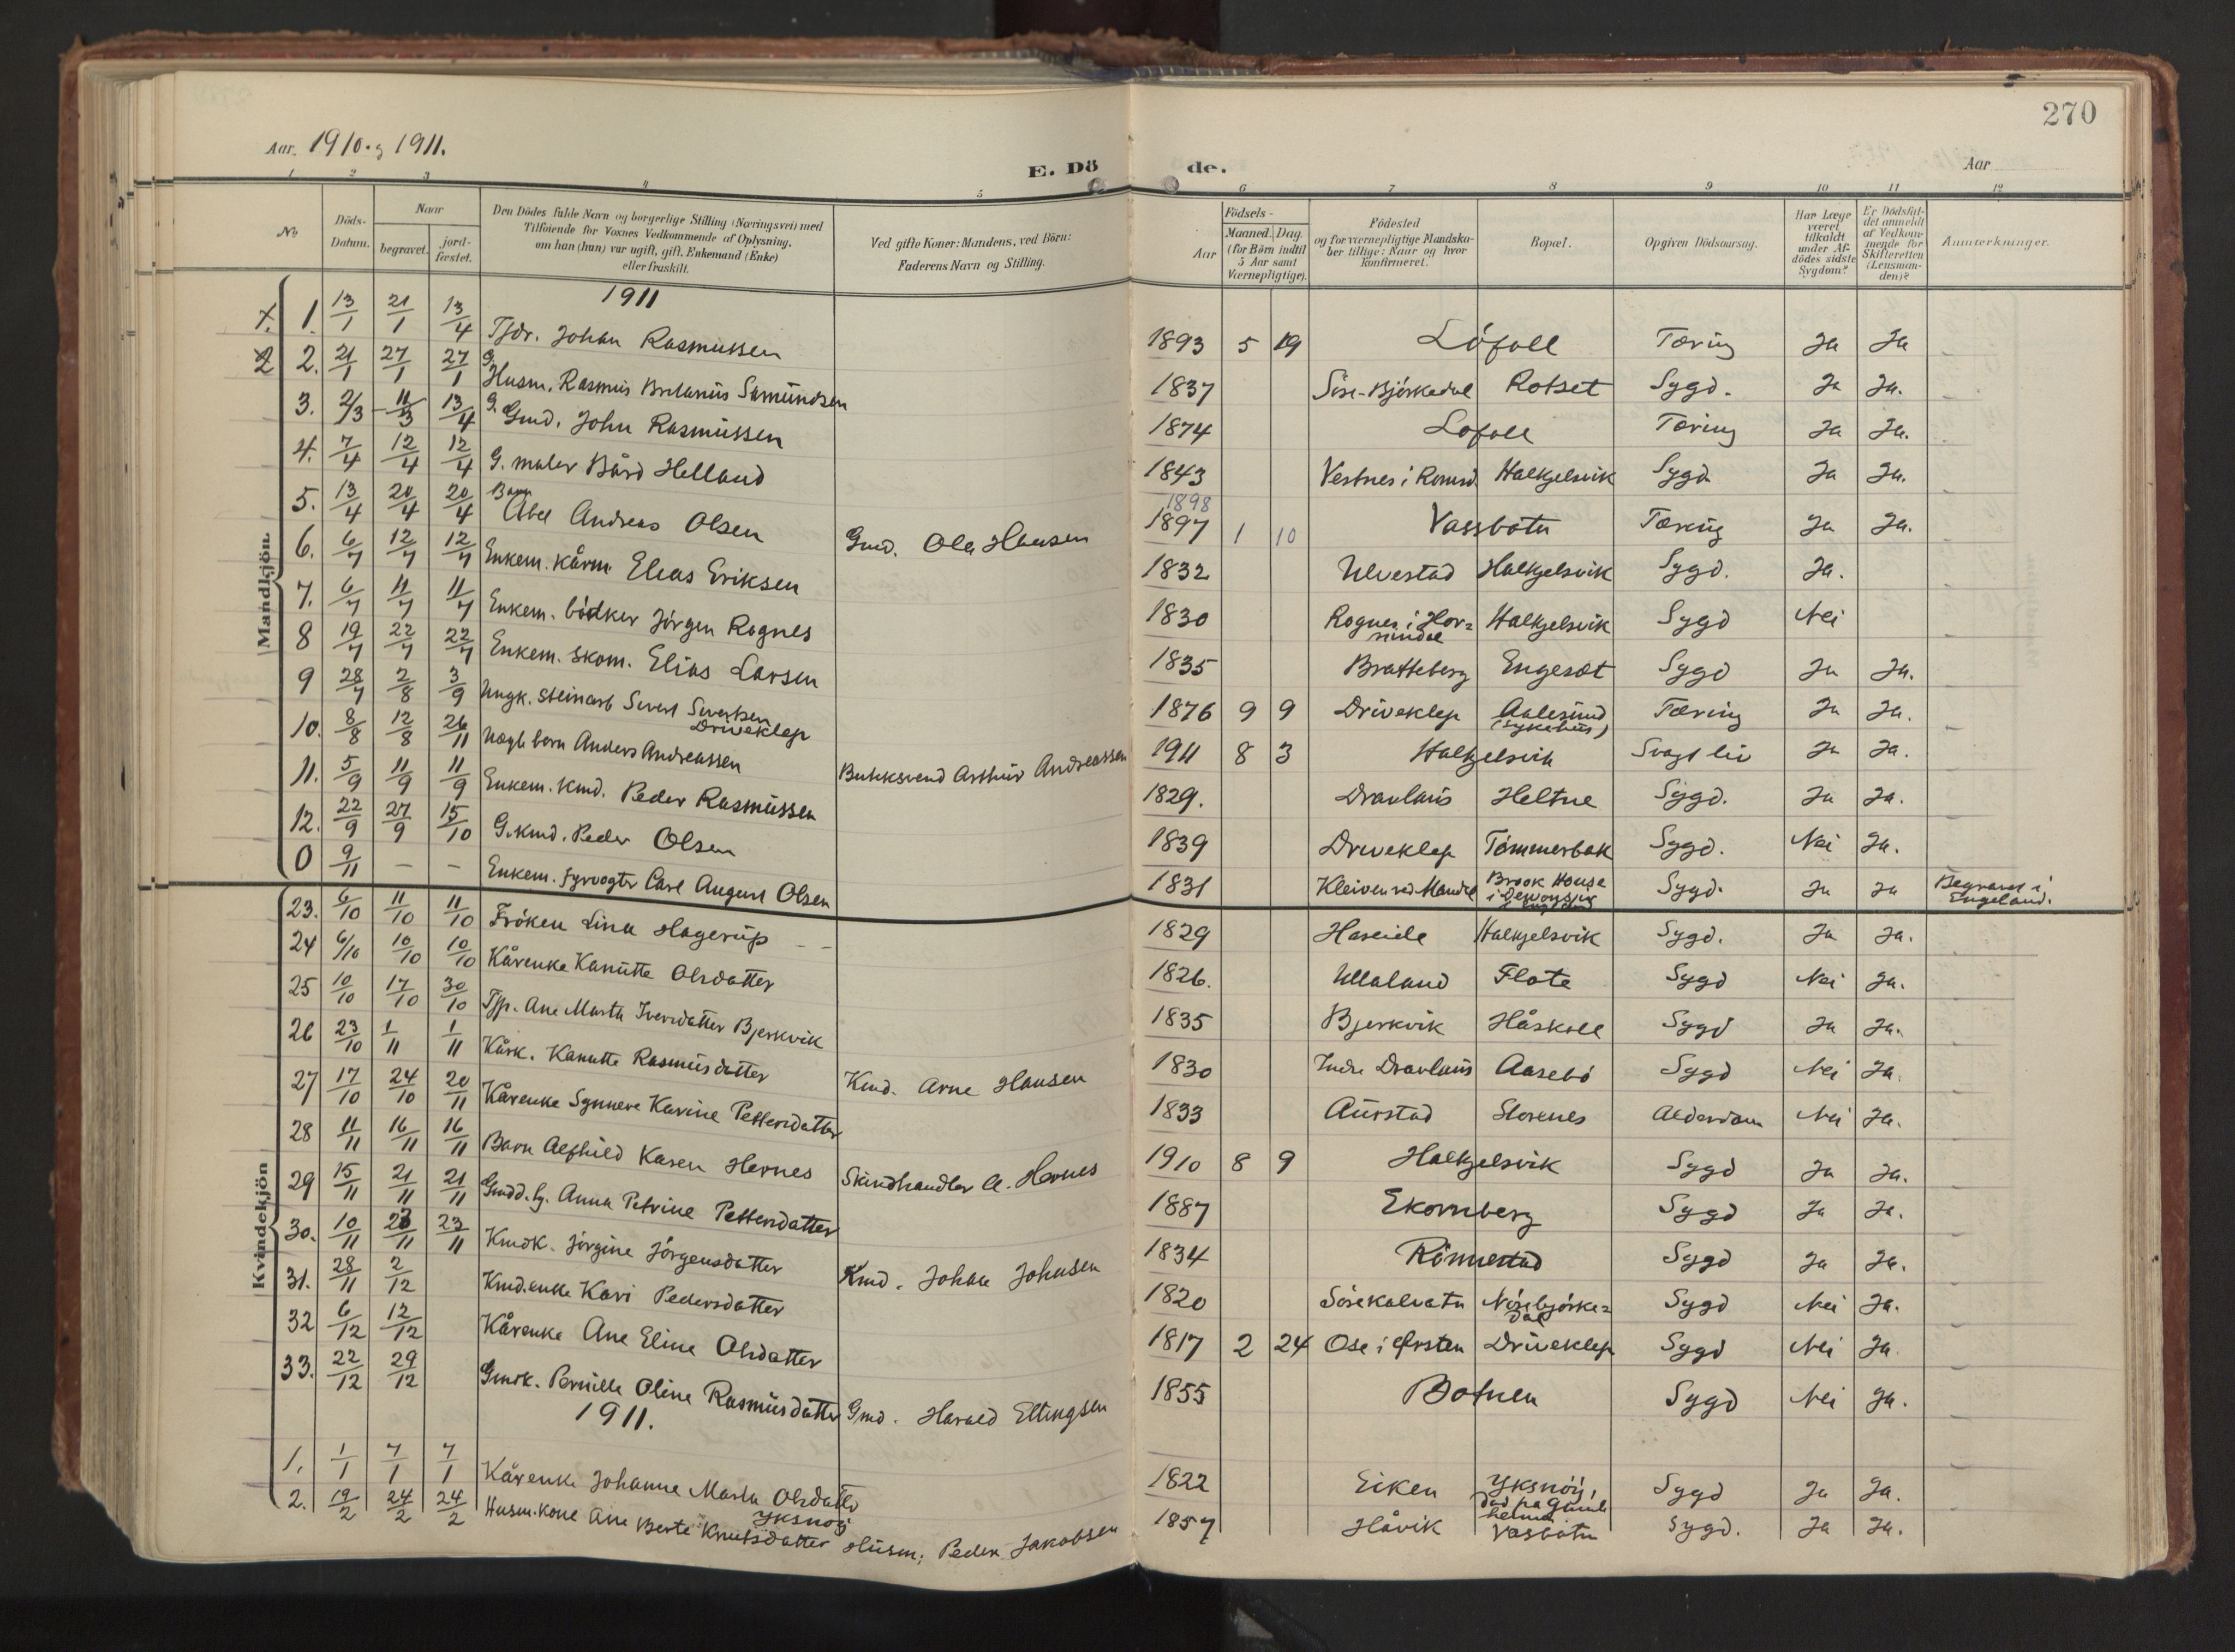 270
Aar 1910 og 1911.
E. Döde.
Aar
1 2 3 4 5 6 7 8 9 10 11 12
No
Döds-Datum.
Naar
begravet.
jord-fæstet.
Den Dödes fulde Navn og borgerlige Stilling (Næringsvei) med
Tilföiende for Voxnes Vedkommende af Oplysning,
om han (hun) var ugift, gift, Enkemand (Enke)
eller fraskilt.
Ved gifte Koner: Mandens, ved Börn:
Faderens Navn og Stilling.
Födsels-
Aar
Maaned. Dag.
(for Börn indtil
5 Aar samt
Værnepligtige).
Födested
og for værnepligtige Mandska-
ber tillige: Naar og hvor
konfirmeret.
Bopæl.
Opgiven Dödsaarsag.
Har Læge
været
tilkaldt
under Af-
dödes sidste
Sygdom?
Er Dödsfal-
det anmeldt
af Vedkom-
mende for
Skifteretten
(Lensman-
den)?
Anmærkninger.
Mandkjön
1911
1. 13/1 21/1 13/4 Tjdr. Johan Rasmussen 1893 5 19 Löfoll Tæring Ja Ja
2. 21/1 27/1 27/1 G. Husm. Rasmus Samundsen 1837 Söre-Björkedal Rotset Sygd. Ja Ja.
3. 2/3 11/3 13/4 G. Gmd. John Rasmussen 1874 Lofoll Tæring Ja Ja.
4. 7/4 12/4 12/4 G. maler Bård Helland 1843 Vestnes i Romsd. Halkjelsvik Sygd Ja Ja.
5. 13/4 20/4 20/4 Barn Abel Andreas Olsen Gmd. Ola Hansen 1898 1897 1 10 Vassbotn Tæring Ja Ja.
6. 6/7 12/7 12/7 Enkem. kårm. Elias Eriksen 1832 Ulvestad Halkjelsvik Sygd. Ja.
7. 6/7 11/7 11/7 Enkem. bödker Jörgen Rognes 1830 Rognes i Hor=nindal Halkjelsvik Sygd Nei
8 19/7 22/7 22/7 Enkem. skom. Elias Larsen 1835 Bratteberg Engeset Sygd Ja Ja.
9 28/7 2/8 3/9 Ungk. steinarb Sivert Sivertsen Driveklep 1876 9 9 Driveklep Aalesund (sykehus) Tæring Ja Ja.
10. 8/8 12/8 26/11 Uægte barn Anders Andreassen Butiksvend Arthur Andreassen 1911 8 3 Halkjelsvik Svagt liv Ja Ja.
11. 5/9 11/9 11/9 Enkem. Kmd. Peder Rasmussen 1829. Dravlaus Heltne Sygd. Ja Ja.
12. 22/9 27/9 15/10 G. kmd. Peder Olsen 1839 Driveklep Tömmerbak Sygd. Nei Ja.
0 9/11 – – Enkem. fyrvogter Carl August Olsen 1831 Kleiven ved Mandal Brook House i Sygd. Ja Ja Begravet i Engeland.
Kvindekjön
23. 6/10 11/10 11/10 Fröken Lina Hagerup – – 1829 Hareide Halkjelsvik Sygd. Ja Ja.
24 6/10 10/10 10/10 Kårenke Kanutte Olsdatter 1826. Ullaland Flote Sygd Nei Ja.
25 10/10 17/10 30/10 Tjp. Ane Marta Iversdatter Bjerkvik 1835 Bjerkvik Håskoll Sygd Ja Ja.
26 23/10 1/11 1/11 Kårk. Kanutte Rasmusdatter Kmd. Arne Hansen 1830 Indre Dravlaus Aasebö Sygd Nei Ja.
27 17/10 24/10 20/11 Kårenke Synneve Karine Pettersdatter 1833 Aurstad Storenes Alderdom Nei Ja.
28 11/11 16/11 16/11 Barn Alfhild Karen Hernes Skindhandler A. Hernes 1910 8 9 Halkjelsvik Sygd Ja Ja.
29 15/11 21/11 21/11 Gmdd. Anna Petrine Pettersdatter 1887 Ekornberg Sygd Ja Ja.
30. 10/11 23/11 23/11 Kmdk. Jörgine Jörgensdatter Kmd. Johan Johnsen 1834 Rönnestad Sygd Ja Ja.
31. 28/11 2/12 Kmd.enke Kari Pedersdatter 1820 Sörekalvatn Nörebjörke=dal Sygd Nei Ja.
32 6/12 12/12 Kårenke Ane Eline Olsdatter 1817 2 24 Ose i Örsten Driveklep Sygd Nei Ja
33. 22/12 29/12 Gmdk. Pernille Oline Rasmusdatter Gmd. Harald Ellingsen 1855 Botnen Sygd Nei Ja.
1911.
1. 1/1 7/1 7/1 Kårenke Johanne Marta Olsdatter Yksnöy 1822 Eiken Yksnöy, Sygd Ja Ja.
2. 19/2 24/2 24/2 Husm.kone Ane Berte Knutsdatter Husm. Peder Jakobsen 1857 Håvik Vasbotn Sygd. Ja Ja.